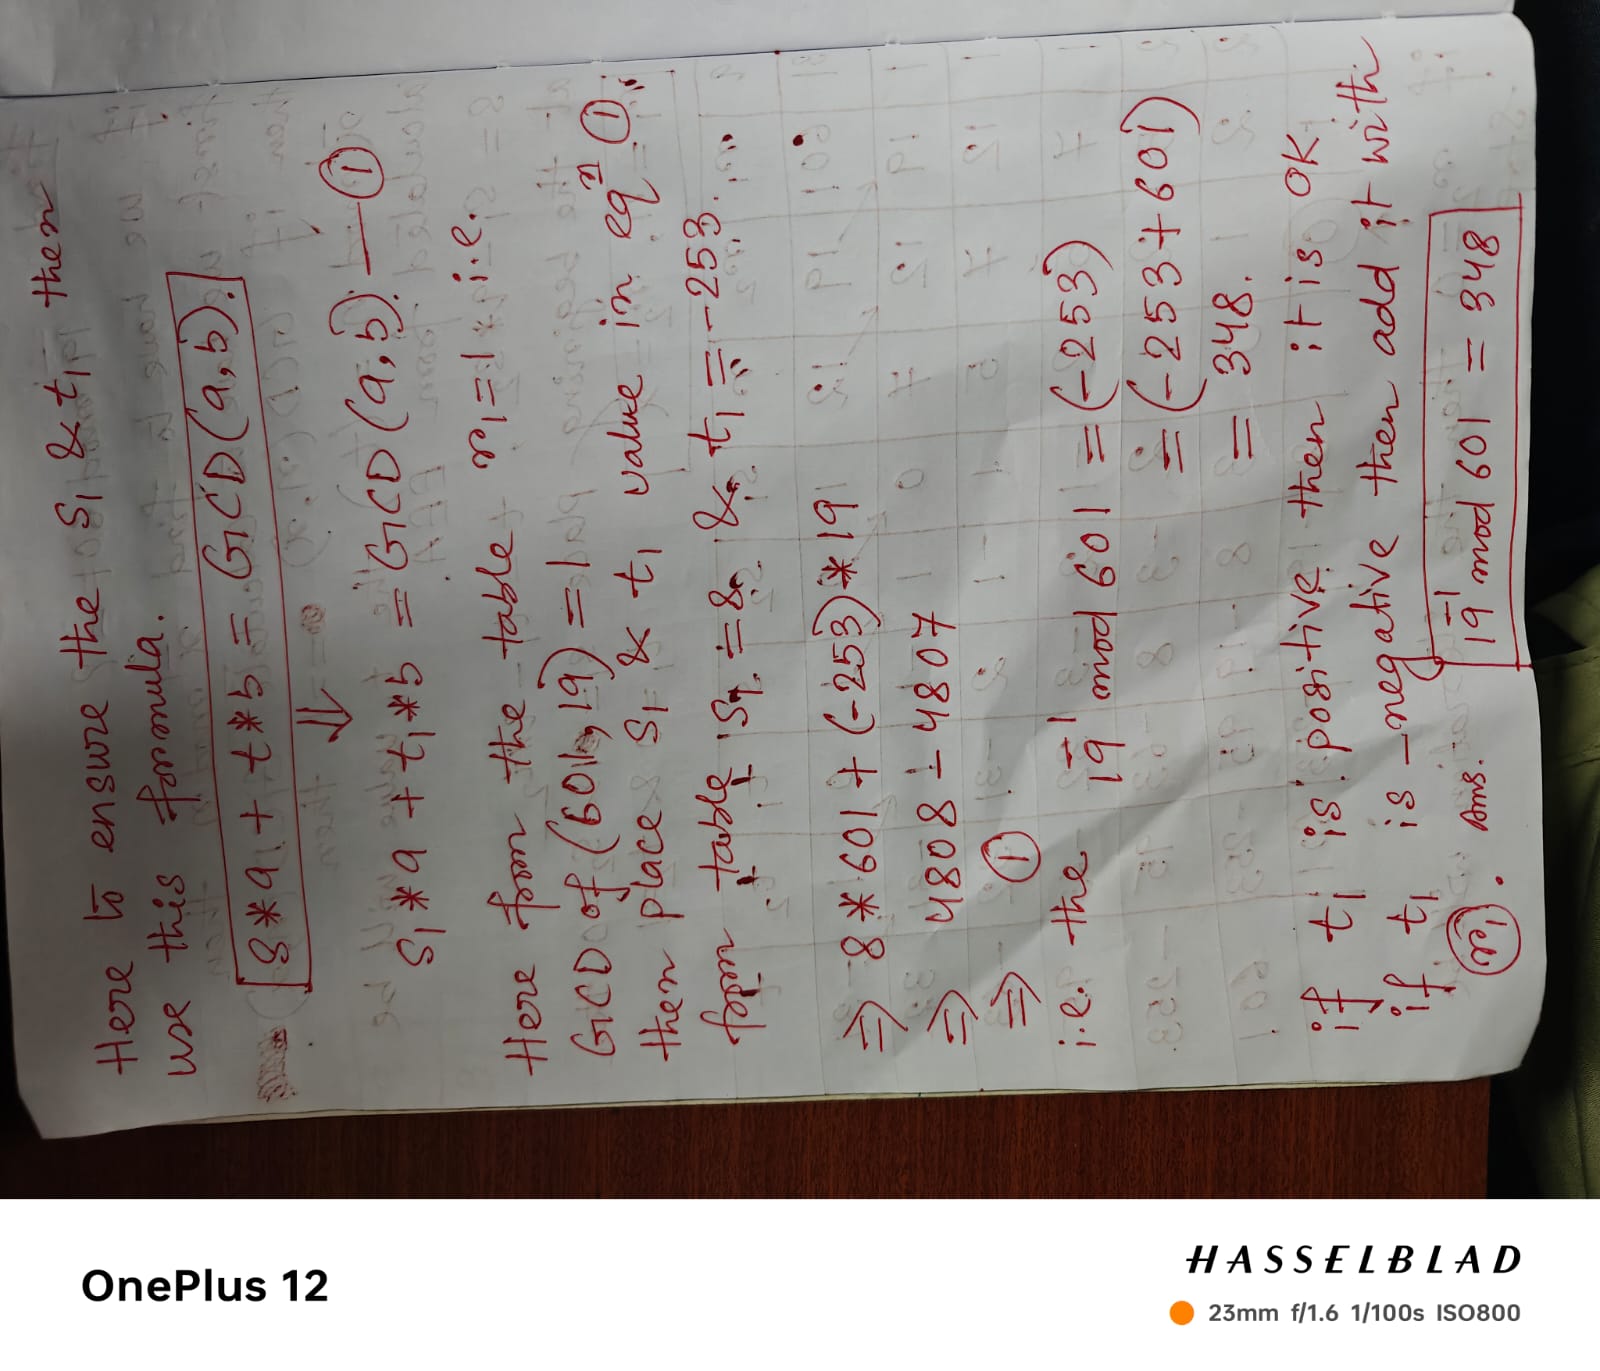 Here to ensure the S1 & t1 then
use this formula.
S*a + t*b = GCD(a,b).
⇓
S1*a + t1*b = GCD(a,b). — ①
Here from the table r1=1 i.e.
GCD of (601,19) = 1
then place S1 & t1 value in eqn ①
from table S1 = 8 & t1 = -253.
⇒ 8*601 + (-253)*19
⇒ 4808 - 4807
⇒ ①
i.e. the 19^-1 mod 601 = (-253)
= (-253+601)
= 348.
if t1 is positive then it is OK
if t1 is -negative then add it with
Ans. 19^-1 mod 601 = 348
OnePlus 12
HASSELBLAD
23mm f/1.6 1/100s ISO800